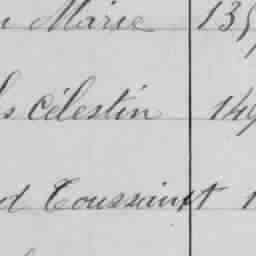 Marie 135
s Célestin 149
d Toussaint 1